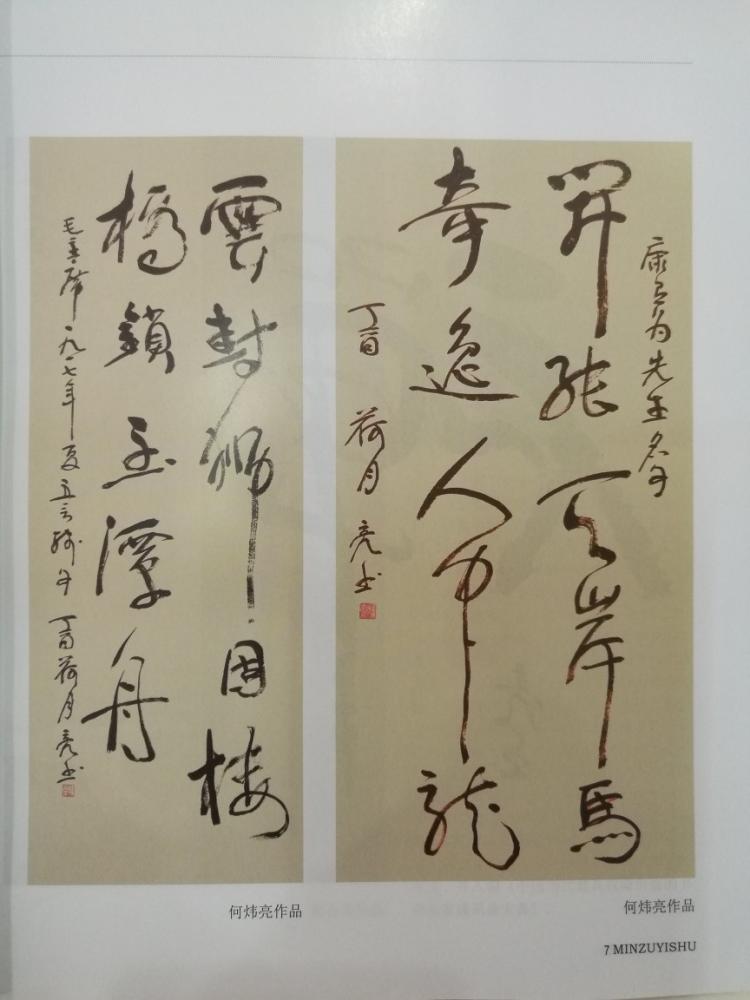 康有为先生名句
開張天岸馬
奇逸人中龍
丁酉 荷月 亮书
雲封狮固楼
橋鎖玉潭舟
毛主席一九一七年夏五言句 丁酉荷月亮书
何炜亮作品
何炜亮作品
7 MINZUYISHU